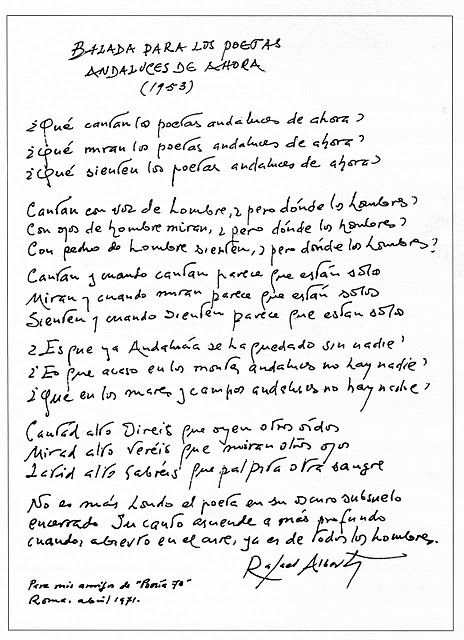 BALADA PARA LOS POETAS
ANDALUCES DE AHORA
(1953)
¿Qué cantan los poetas andaluces de ahora?
¿Qué miran los poetas andaluces de ahora?
¿Qué sienten los poetas andaluces de ahora?
Cantan con voz de hombre, ¿pero dónde los hombres?
Con ojos de hombre miran, ¿pero dónde los hombres?
Con pecho de hombre sienten, ¿pero dónde los hombres?
Cantan y cuando cantan parece que están solos
Miran y cuando miran parece que están solos
Sienten y cuando sienten parece que están solos
¿Es que ya Andalucía se ha quedado sin nadie?
¿Es que acaso en los montes andaluces no hay nadie?
¿Que en los mares y campos andaluces no hay nadie?
Cantad alto Direis que oyen otros oidos
Mirad alto Veréis que miran otros ojos
Latid alto Sabréis que palpita otra sangre
No es más hondo el poeta en su oscuro subsuelo
encerrado Su canto asciende a más profundo
cuando, abierto en el aire, ya es de todos los hombres.
Rafael Alberti
Para mis amigos de "Poesía 70"
Roma, abril, 1971.